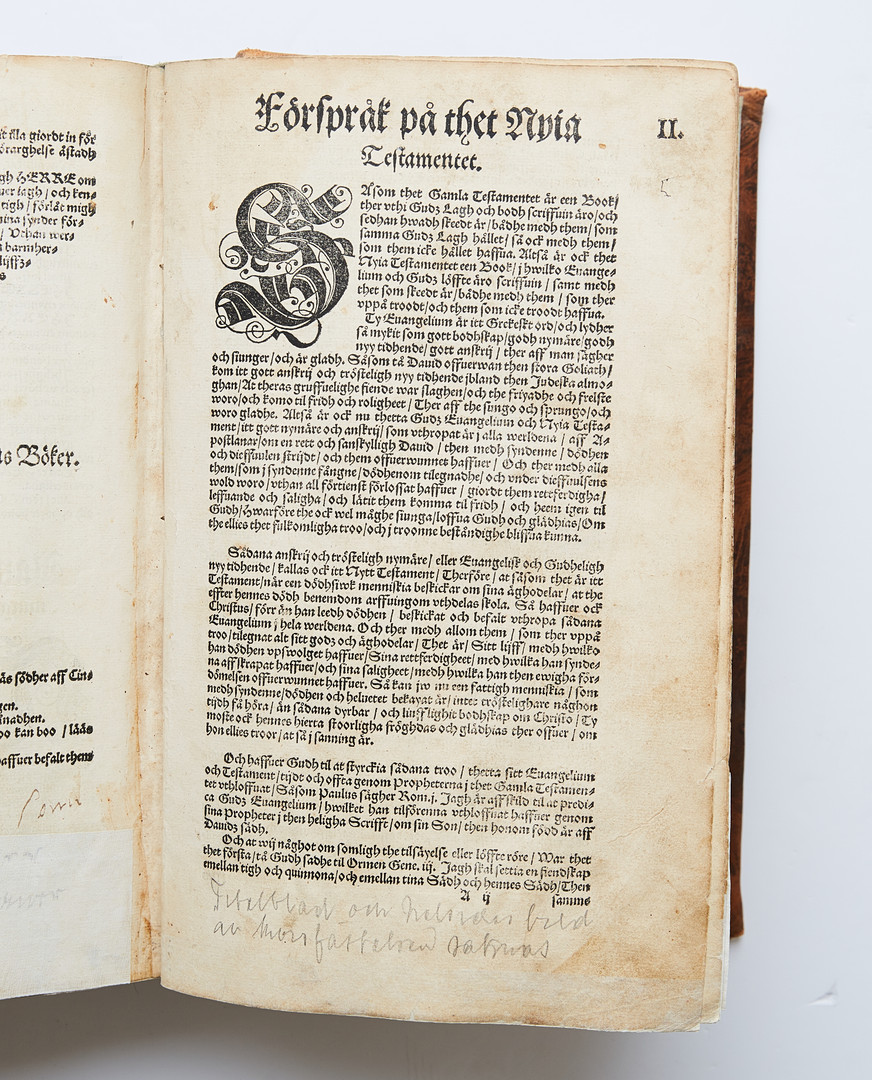 it illa giordt in för
örarghelse åstadh
gh HERRE om
uer iagh / och ken-
tigh / förlåt migh
mina synder för-
/ Vthan wer-
barmher-
lijffz-
s
us Böker.
äs södher aff Cin-
gen.
nadhen.
oo kan boo / lääs
haffuer befalt them
Förspråk på thet Nyia
II.
Testamentet.
SÅsom thet Gamla Testamentet är een Book/
ther vthi Gudz Lagh och bodh scriffuin äro/och
sedhan hwadh skeedt är/bådhe medh them/som
samma Gudz Lagh hållet/så ock medh them/
som them icke hållet haffua. Altså är ock thet
Nyia Testamentet een Book/j hwilko Euange-
lium och Gudz löffte äro scriffuin/samt medh
thet som skeedt är/bådhe medh them/som ther
vppå troodt/och them som icke troodt haffua.
Ty Euangelium är itt Grekeskt ord/och lydher
så mykit som gott bodhskap/godh nymäre/godh
nyy tidhende/gott anskrij/ther aff man sägher
och siunger/och är gladh. Såsom tå Dauid offuerwan then stora Goliath/
kom itt gott anskrij och trösteligh nyy tidhende jbland then Judeska almo-
ghan/At theras gruffuelighe fiende war slaghen/och the friyadhe och frelste
woro/och komo til fridh och roligheet/Ther aff the sungo och sprungo/och
woro gladhe. Altså är ock nu thetta Gudz Euangelium och Nyia Testa-
ment/itt gott nymäre och anskrij/som vthropat är j alla werldena/aff A-
postlanar/om en rett och sanskylligh Dauid/then medh syndenne/dödhen
och dieffuulen strijdt/och them offuerwunnet haffuer/Och ther medh alla
them/som j syndenne fångne/dödhenom tilegnadhe/och vnder dieffuulsens
wold woro/vthan all förtienst förlossat haffuer/giordt them retferdigha/
leffuande och saligha/och låtit them komma til fridh/och heem igen til
Gudh/Hwarföre the ock wel måghe siunga/loffua Gudh och glädhias/Om
the ellies thet fulkomligha troo/och j troonne beståndighe bliffua kunna.
Sådana anskrij och trösteligh nymäre/eller Euangelisk och Gudheligh
nyy tidhende/kallas ock itt Nytt Testament/Therföre/at såsom thet är itt
Testament/när een dödhsiwk menniskia beskickar om sina äghodelar/at the
effter hennes dödh benemdom arffuingom vthdelas skola. Så haffuer ock
Christus/förr än han leedh dödhen/beskickat och befalt vthropa sådana
Euangelium j hela werldena. Och ther medh allom them/som ther vppå
troo/tilegnat alt sitt godz och äghodelar/Thet är/Sitt lijff/medh hwilko
han dödhen vpswolget haffuer/Sina rettferdigheet/medh hwilka han synde-
na affskrapat haffuer/och sina saligheet/medh hwilka han then ewigha för-
dömelsen offuerwunnet haffuer. Så kan jw nu een fattigh menniskia/som
medh syndenne/dödhen och heluetet bekayat är/intet tröskelighare någhon
tijdh få höra/än sådana dyrbar/och liuffligit bodhskap om Christo/Ty
moste ock hennes hierta stoorligha fröghdas och glädhias ther offuer/om
hon ellies troor/at så j sanning är.
Och haffuer Gudh til at styrckia sådana troo/thetta sitt Euangelium
och Testament/tijdt och offta genom Propheterna j thet Gamla Testamen-
tet vthloffuat/Såsom Paulus sägher Rom.j. Jagh är affskild til at predi-
ca Gudz Euangelium/hwilket han tilförenna vthloffuat haffuer genom
sina Propheter j then heligha Scrifft/om sin Son/then honom född är aff
Dauidz sädh.
Och at wij någhot om somligh the tilsäyelse eller löffte röre/War thet
thet första/tå Gudh sadhe til Ormen Gene. iij. Jagh skal settia en fiendskap
emellan tigh och quinnona/och emellan tina Sädh och hennes Sädh/Then
A ij
samma
Titelblad och helsides bild
saknas